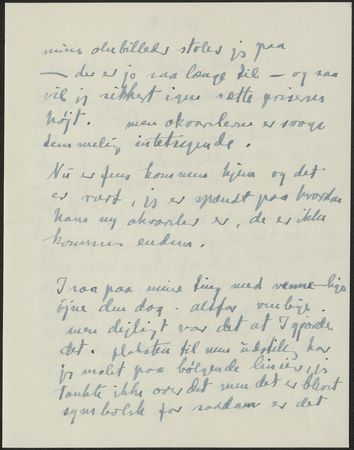 mine oliebilleder stoler jeg paa
— der er jo saa længe til — og saa
vil jeg sikkert igen sætte priserne
højt. men akvarellerne er svage
temmelig intetsigende.
Nu er Jens kommen hjem og det
er rart, jeg er spændt paa hvordan
hans ny akvareller er, de er ikke
kommen endnu.
I saa paa mine ting med venne-lige
øjne den dag - altfor venlige.
men dejligt var det at I gjorde
det. plakaten til min udstilling har
jeg malt paa bølgende linier, jeg
tænkte ikke over det men det er blevet
symbolsk for saadan er det